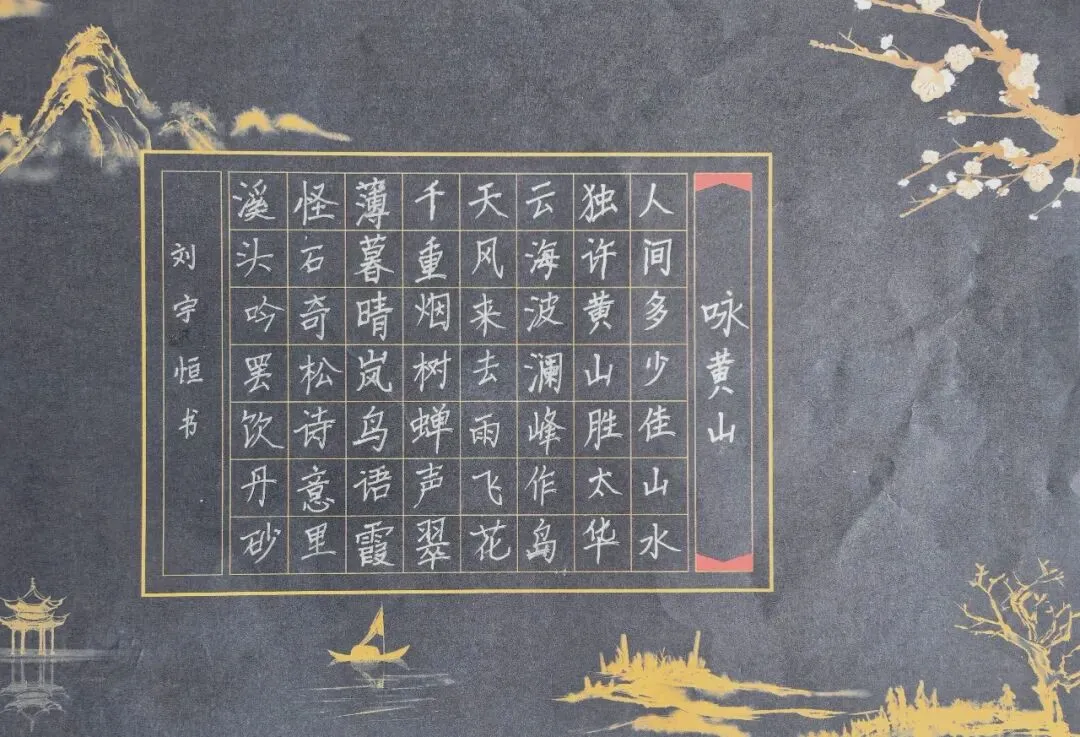 咏黄山
人间多少佳山水
独许黄山胜太华
云海波澜峰作岛
天风来去雨飞花
千重烟树蝉声翠
薄暮晴岚鸟语霞
怪石奇松诗意里
溪头吟罢饮丹砂
刘宇恒书